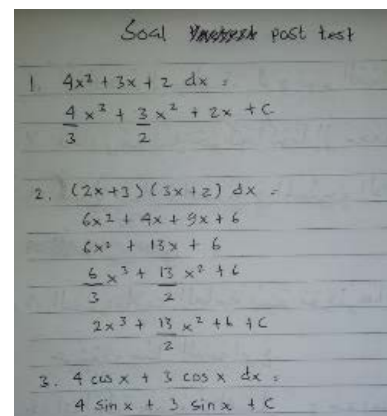 Soal post test
1. 4x² + 3x + 2 dx =
4/3 x³ + 3/2 x² + 2x + C
2. (2x+3)(3x+2) dx =
6x² + 4x + 9x + 6
6x² + 13x + 6
6/3 x³ + 13/2 x² + 6
2x³ + 13/2 x² + 6 + C
3. 4 cos x + 3 cos x dx =
4 sin x + 3 sin x + C